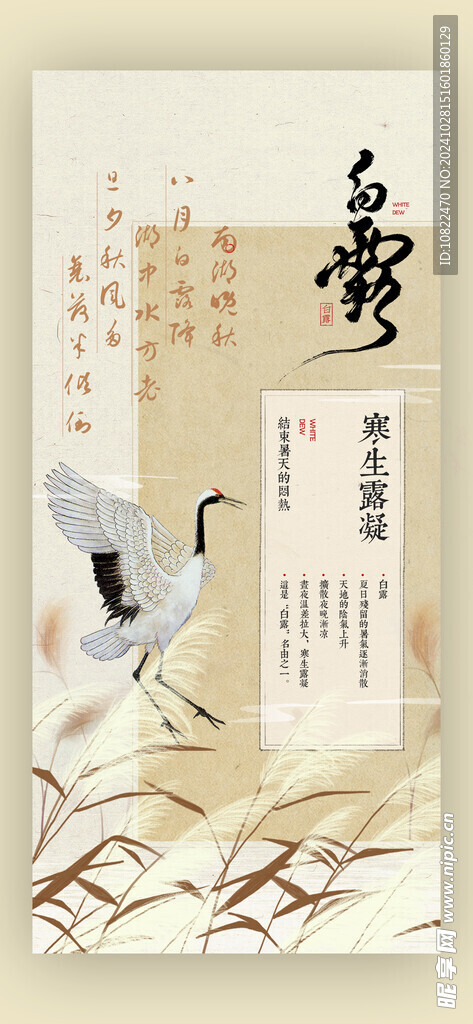 白露
WHITE
DEW
白露
南湖晚秋
八月白露降
湖中水方老
旦夕秋风多
衰荷半倾倒
寒生露凝
WHITE
DEW
結束暑天的悶熱
白露
夏日殘留的暑氣逐漸消散
天地的陰氣上升
擴散夜晚漸凉
晝夜溫差拉大，寒生露凝
這是“白露”名由之一。
ID:10822470 NO:20241028151601860129
昵享网 www.nipic.cn